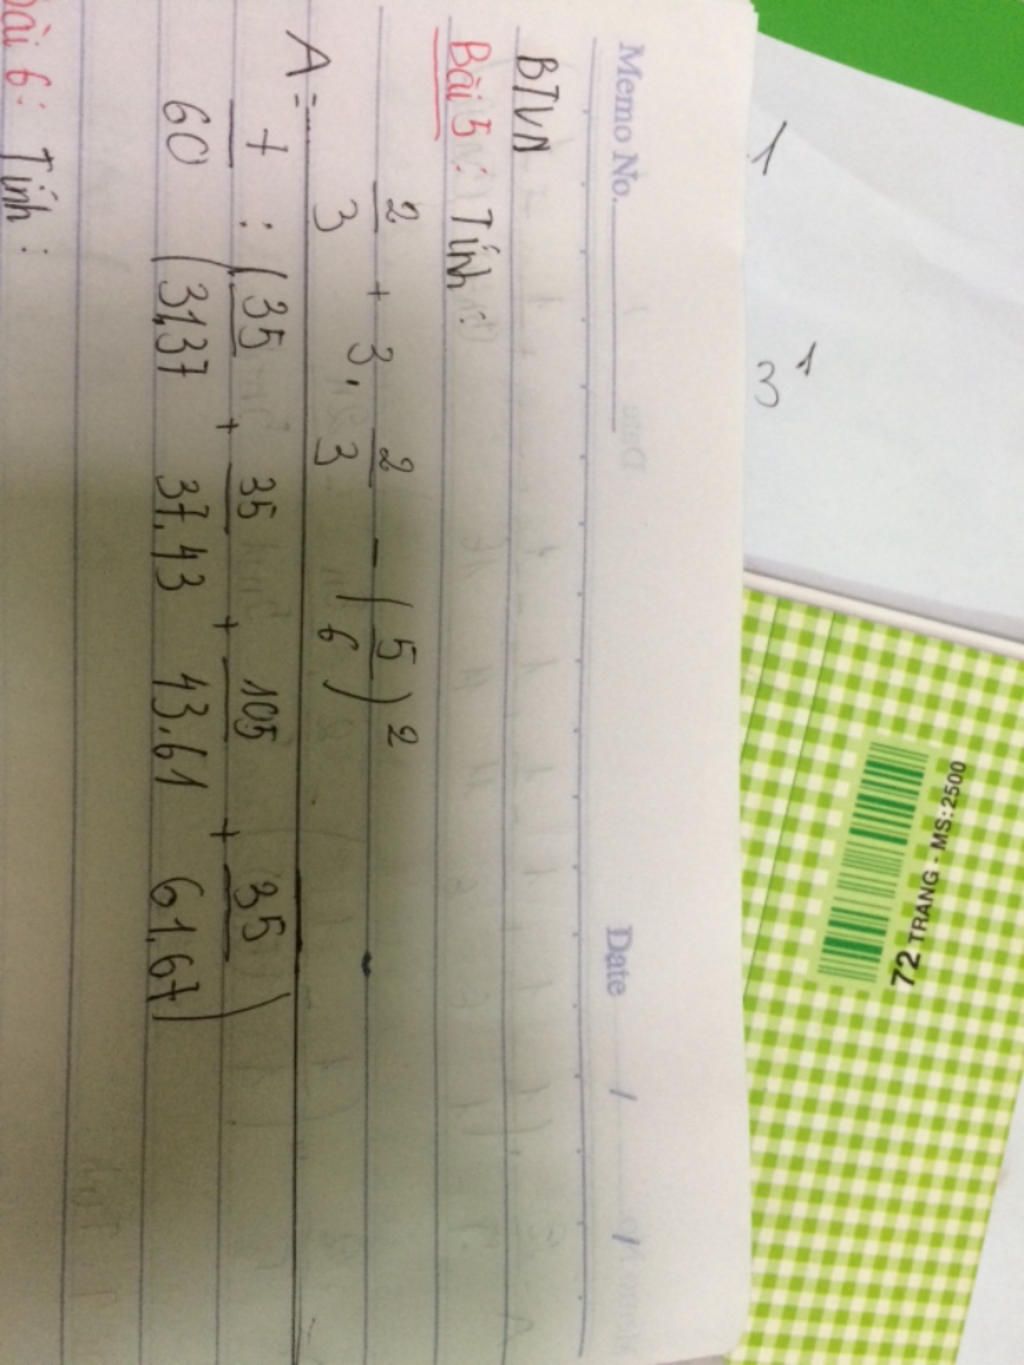 Memo No. Date / /
BTVN
Bài 5: Tính:
2/3 + 3. 2/3 - (5/6)²
A =
7/60 : (35/31.37 + 35/37.43 + 105/43.61 + 35/61.67)
Bài 6: Tính:
1
3 1
72 TRANG - MS: 2500